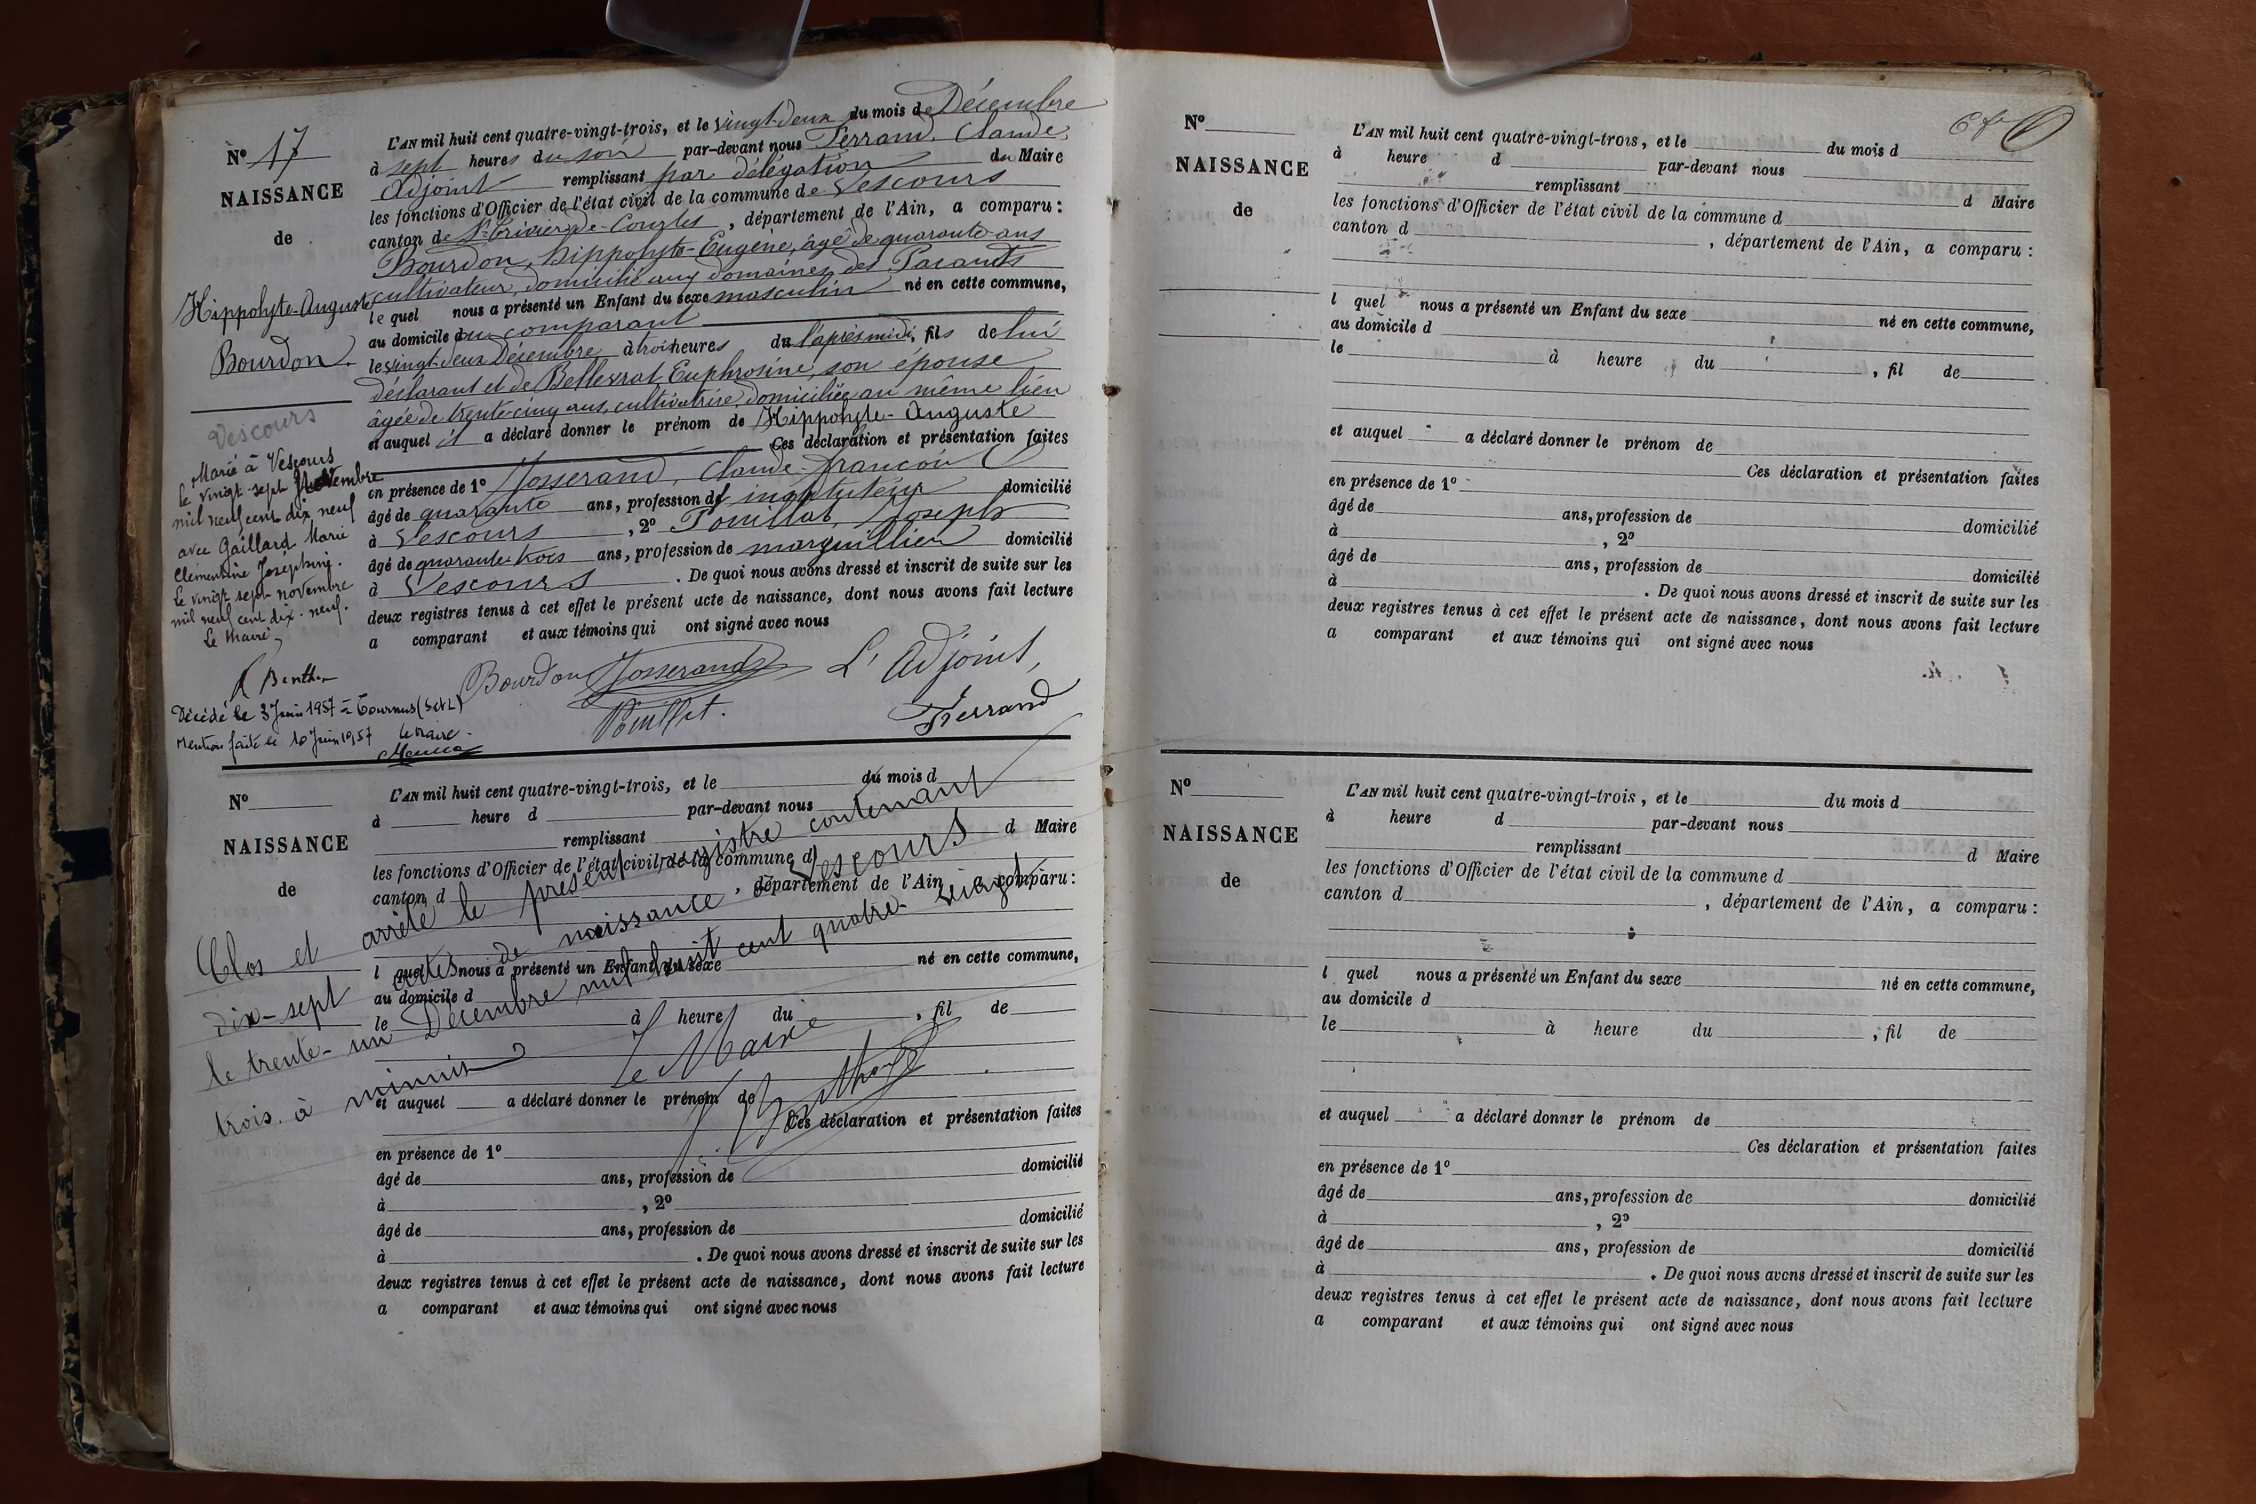 N° 17
NAISSANCE
de
Hippolyte-Auguste
Bourdon.
Vescours
Marié à Vescours
le vingt-sept Novembre
mil neuf cent dix neuf
avec Gaillard Marie
Clémentine Joséphine.
Le vingt sept novembre
mil neuf cent dix-neuf.
Le Maire
Décédé le 3 Juin 1957 à Tournus (S et L)
Mention faite le 10 Juin 1957 Le Maire
L'AN mil huit cent quatre-vingt-trois, et le vingt-deux du mois de Décembre
à sept heures du soir par-devant nous Ferrand, Claude,
Adjoint remplissant par délégation du Maire
les fonctions d'Officier de l'état civil de la commune de Vescours
canton de St Trivier-de-Courtes, département de l'Ain, a comparu :
Bourdon, hippolyte-Eugène, âgé de quarante ans
cultivateur, domicilié aux domaines des Pacauds
le quel nous a présenté un Enfant du sexe masculin né en cette commune,
au domicile du comparant
le vingt deux Décembre à trois heures du l'après midi, fils de lui
déclarant et de Bellevrat Euphrosine, son épouse
âgée de trente-cinq ans, cultivatrice, domiciliée au même lieu
et auquel il a déclaré donner le prénom de Hippolyte-Auguste
Ces déclaration et présentation faites
en présence de 1° Josserand, Claude-françois
âgé de quarante ans, profession d'instituteur domicilié
à Vescours, 2° Pouillat, Joseph
âgé de quarante trois ans, profession de marguillier domicilié
à Vescours. De quoi nous avons dressé et inscrit de suite sur les
deux registres tenus à cet effet le présent acte de naissance, dont nous avons fait lecture
a comparant et aux témoins qui ont signé avec nous
Bourdon Josserand L'Adjoint,
Pouillat. Ferrand
N°
NAISSANCE
de
L'AN mil huit cent quatre-vingt-trois, et le du mois d
à heure d par-devant nous
remplissant d Maire
les fonctions d'Officier de l'état civil de la commune d
canton d , département de l'Ain, a comparu :
l quel nous a présenté un Enfant du sexe né en cette commune,
au domicile d
le à heure du , fil de
et auquel a déclaré donner le prénom de
Ces déclaration et présentation faites
en présence de 1°
âgé de ans, profession de domicilié
à , 2°
âgé de ans, profession de domicilié
à . De quoi nous avons dressé et inscrit de suite sur les
deux registres tenus à cet effet le présent acte de naissance, dont nous avons fait lecture
a comparant et aux témoins qui ont signé avec nous
Clos et arrêté le présent registre contenant
dix-sept actes de naissance à Vescours
le trente-un Décembre mil huit cent quatre-vingt-
trois à minuit
Le Maire
N°
NAISSANCE
de
L'AN mil huit cent quatre-vingt-trois, et le du mois d
à heure d par-devant nous
remplissant d Maire
les fonctions d'Officier de l'état civil de la commune d
canton d , département de l'Ain, a comparu :
l quel nous a présenté un Enfant du sexe né en cette commune,
au domicile d
le à heure du , fil de
et auquel a déclaré donner le prénom de
Ces déclaration et présentation faites
en présence de 1°
âgé de ans, profession de domicilié
à , 2°
âgé de ans, profession de domicilié
à . De quoi nous avons dressé et inscrit de suite sur les
deux registres tenus à cet effet le présent acte de naissance, dont nous avons fait lecture
a comparant et aux témoins qui ont signé avec nous
N°
NAISSANCE
de
L'AN mil huit cent quatre-vingt-trois, et le du mois d
à heure d par-devant nous
remplissant d Maire
les fonctions d'Officier de l'état civil de la commune d
canton d , département de l'Ain, a comparu :
l quel nous a présenté un Enfant du sexe né en cette commune,
au domicile d
le à heure du , fil de
et auquel a déclaré donner le prénom de
Ces déclaration et présentation faites
en présence de 1°
âgé de ans, profession de domicilié
à , 2°
âgé de ans, profession de domicilié
à . De quoi nous avons dressé et inscrit de suite sur les
deux registres tenus à cet effet le présent acte de naissance, dont nous avons fait lecture
a comparant et aux témoins qui ont signé avec nous